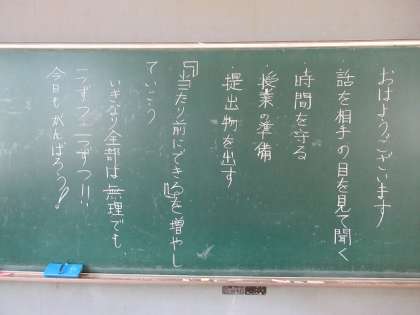 おはようございます
・話を相手の目を見て聞く
・時間を守る
・授業の準備
・提出物を出す
『当たり前にできる』を増やし
ていこう
いきなり全部は無理でも、
一つずつ二つずつ!!
今日もがんばろう!